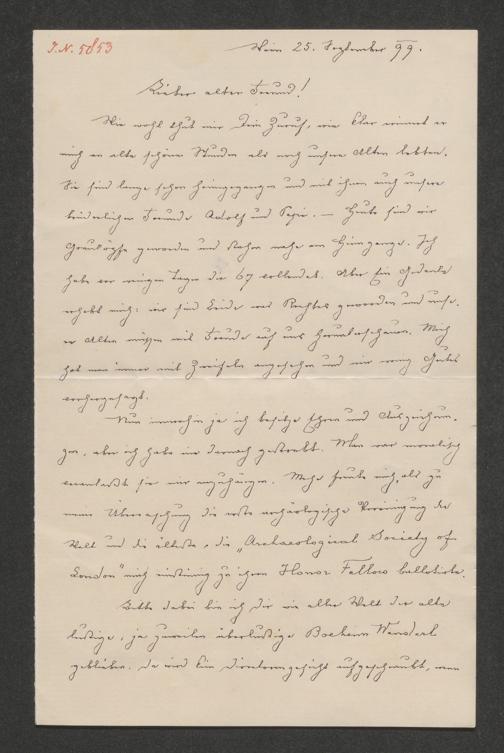 J.N. 5853
Wien 25. September 99.
Lieber alter Freund!
Wie wohl thut mir Dein Zuruf, wie klar erinnert er
mich an alte schöne Stunden als noch unsere Alten lebten.
Sie sind lange schon heimgegangen und mit ihnen auch unsere
brüderlichen Freunde Adolf und Pepi. — Heute sind wir
Grauköpfe geworden und stehen nahe am Heimgange. Ich
habe vor wenigen Tagen die 67 vollendet. Aber Ein Gedanke
erhebt mich: wir sind Beide was Rechtes geworden und unse-
re Alten müssen mit Freude auf uns herunterschauen. Mich
hat man immer mit Zweifeln angesehen und mir wenig Gutes
vorhergesagt.
Nun immerhin ja ich besitze Ehren und Auszeichnun-
gen, aber ich habe nie darnach gestrebt. Man war moralisch
veranlaßt sie mir anzuhängen. Mehr freute mich, als zu
meiner Überraschung die erste archäologische Vereinigung der
Welt und die älteste, die „Archaeological Society of
London" mich einstimmig zu ihrem Honor Fellow ballotirte.
dabei bin ich Dir wie aller Welt der alte
lustige, ja zuweilen überlustige Boeheim Wendel
geblieben. Da wird kein Direktorengesicht aufgeschraubt, wenn